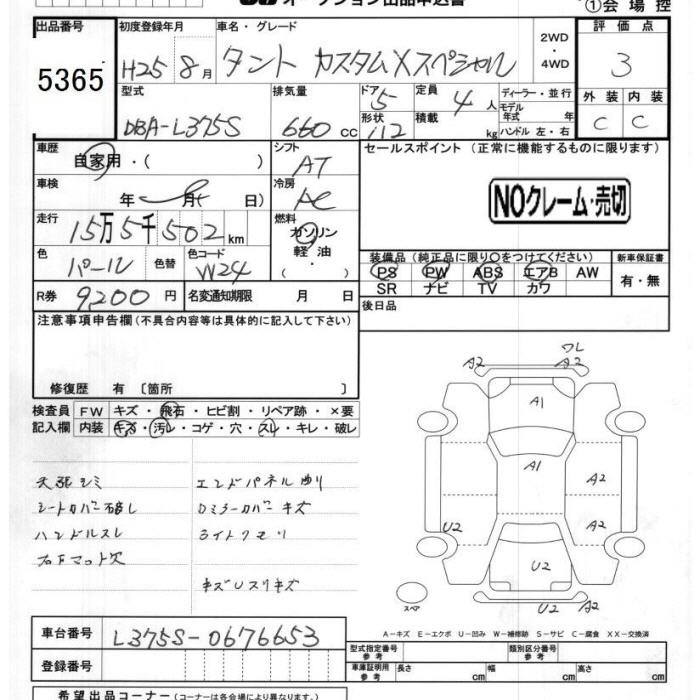 オークション出品申込書
①会場控
出品番号 初度登録年月 車名・グレード 2WD・4WD 評価点
5365 H25 8月 タント カスタムXスペシャル 3
型式 排気量 ドア 5 定員 4人 ディーラー・並行 外装 内装
DBA-L375S 660cc 形状 積載 kg モデル年式 年 C C
ハンドル 左・右
車歴 自家用・( ) シフト AT セールスポイント (正常に機能するものに限ります)
車検 年 月( 日) 冷房 AC
NOクレーム・売切
走行 15万5千502km 燃料 ガソリン 軽油・( )
色 パール 色替 色コード W24
装備品(純正品に限り〇をつけてください) 新車保証書
PS PW ABS エアB AW 有・無
SR ナビ TV カワ
R券 9200円 名変通知期限 月 日
後日品
注意事項申告欄(不具合内容等は具体的に記入して下さい)
修復歴 有 〔箇所 〕
検査員 FW キズ・飛石・ヒビ割・リペア跡・×要
記入欄 内装 キズ・汚レ・コゲ・穴・スレ・キレ・破レ
天張シミ エンドパネル曲リ
シートカバー破レ Dミラーカバーキズ
ハンドルスレ ライトクモリ
フロアマット欠
キズUスリキズ
A2 ワレ A2
A1
A1
A2
U2 A2
U2
A2
スペア
A-キズ E-エクボ U-凹み W-補修跡 S-サビ C-腐食 XX-交換済
車台番号 L375S-0676653
登録番号
型式指定番号 参考 類別区分番号 参考
車庫証明用 参考 長さ cm 幅 cm 高さ cm
希望出品コーナー(コーナーは各会場により異なります。)